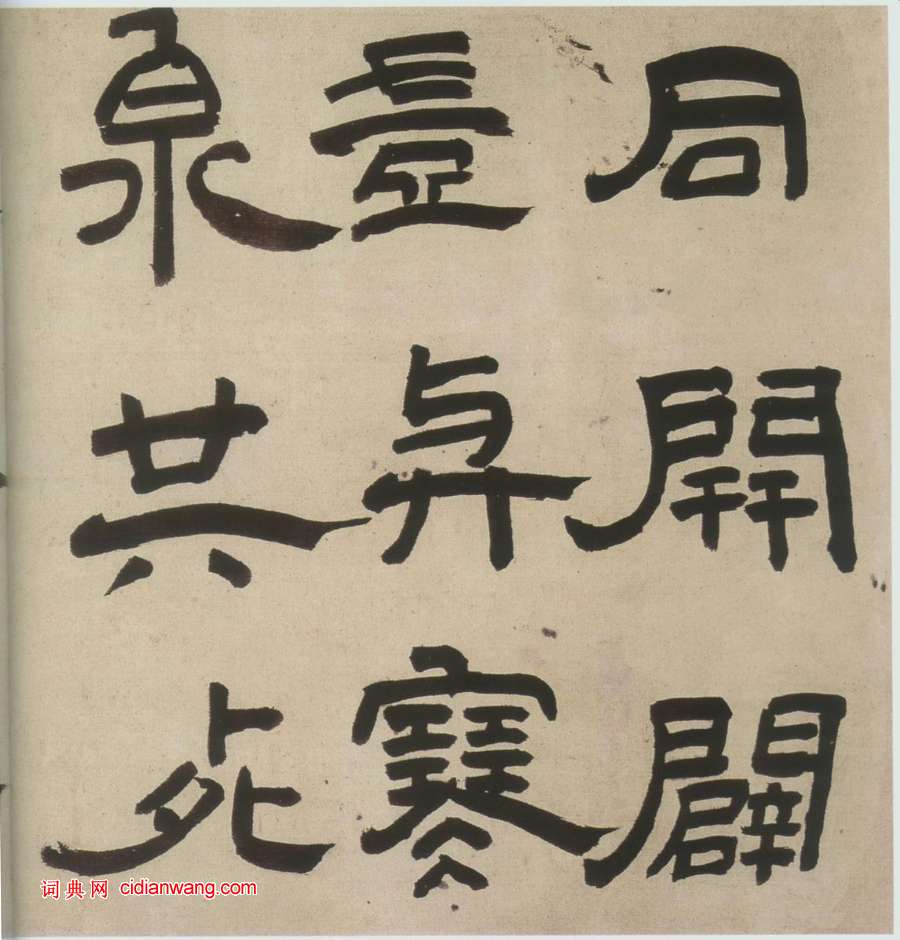 同開闢
與寒
泉共死
词典网 cidianwang.com